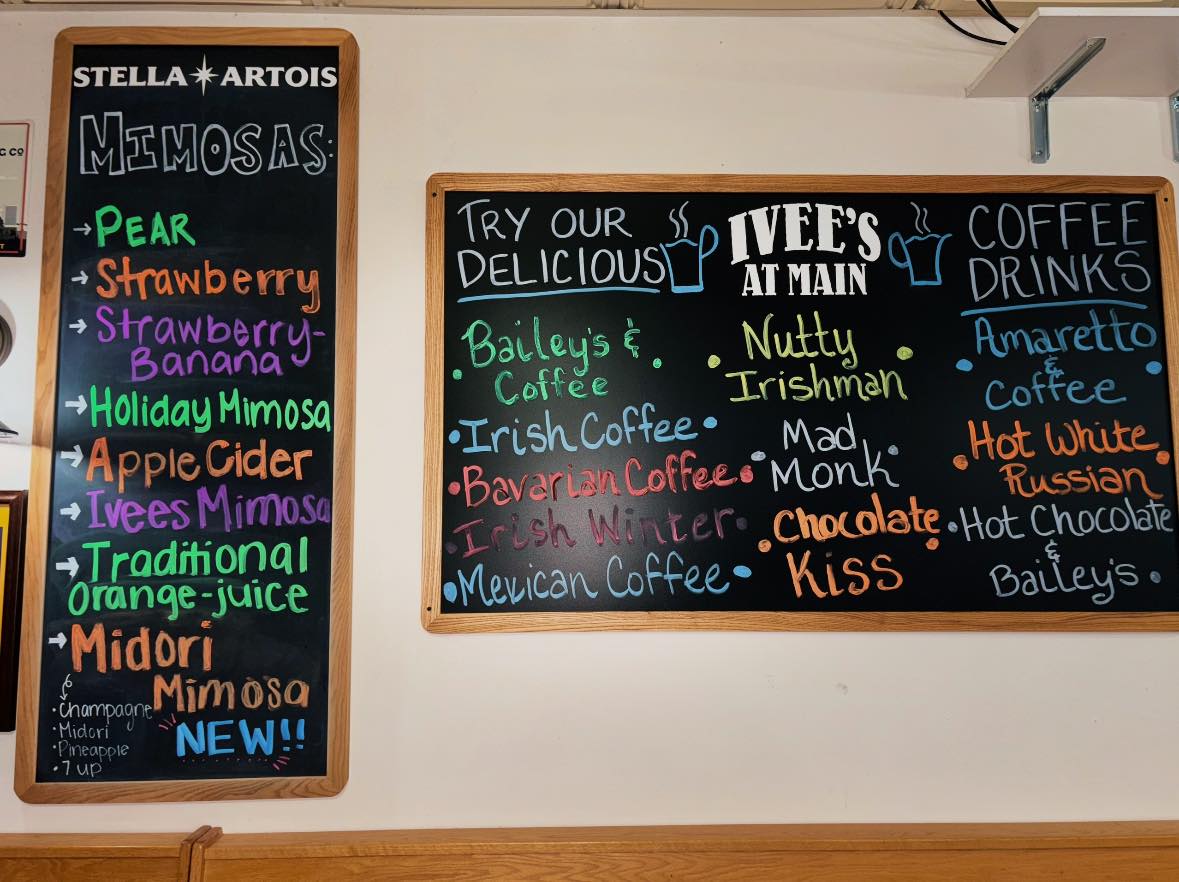 STELLA ARTOIS
MIMOSAS:
→ PEAR
→ Strawberry
→ Strawberry-
Banana
→ Holiday Mimosa
→ Apple Cider
→ Ivees Mimosa
→ Traditional
Orange-juice
→ Midori
Mimosa
NEW!!
• Champagne
• Midori
• Pineapple
• 7 up
TRY OUR
DELICIOUS
IVEE'S
AT MAIN
COFFEE
DRINKS
Bailey's &
Coffee
• Irish Coffee •
• Bavarian Coffee •
• Irish Winter •
• Mexican Coffee •
Nutty
Irishman
Mad
Monk
Chocolate
Kiss
Amaretto
&
Coffee
Hot White
Russian
• Hot Chocolate
&
Bailey's •